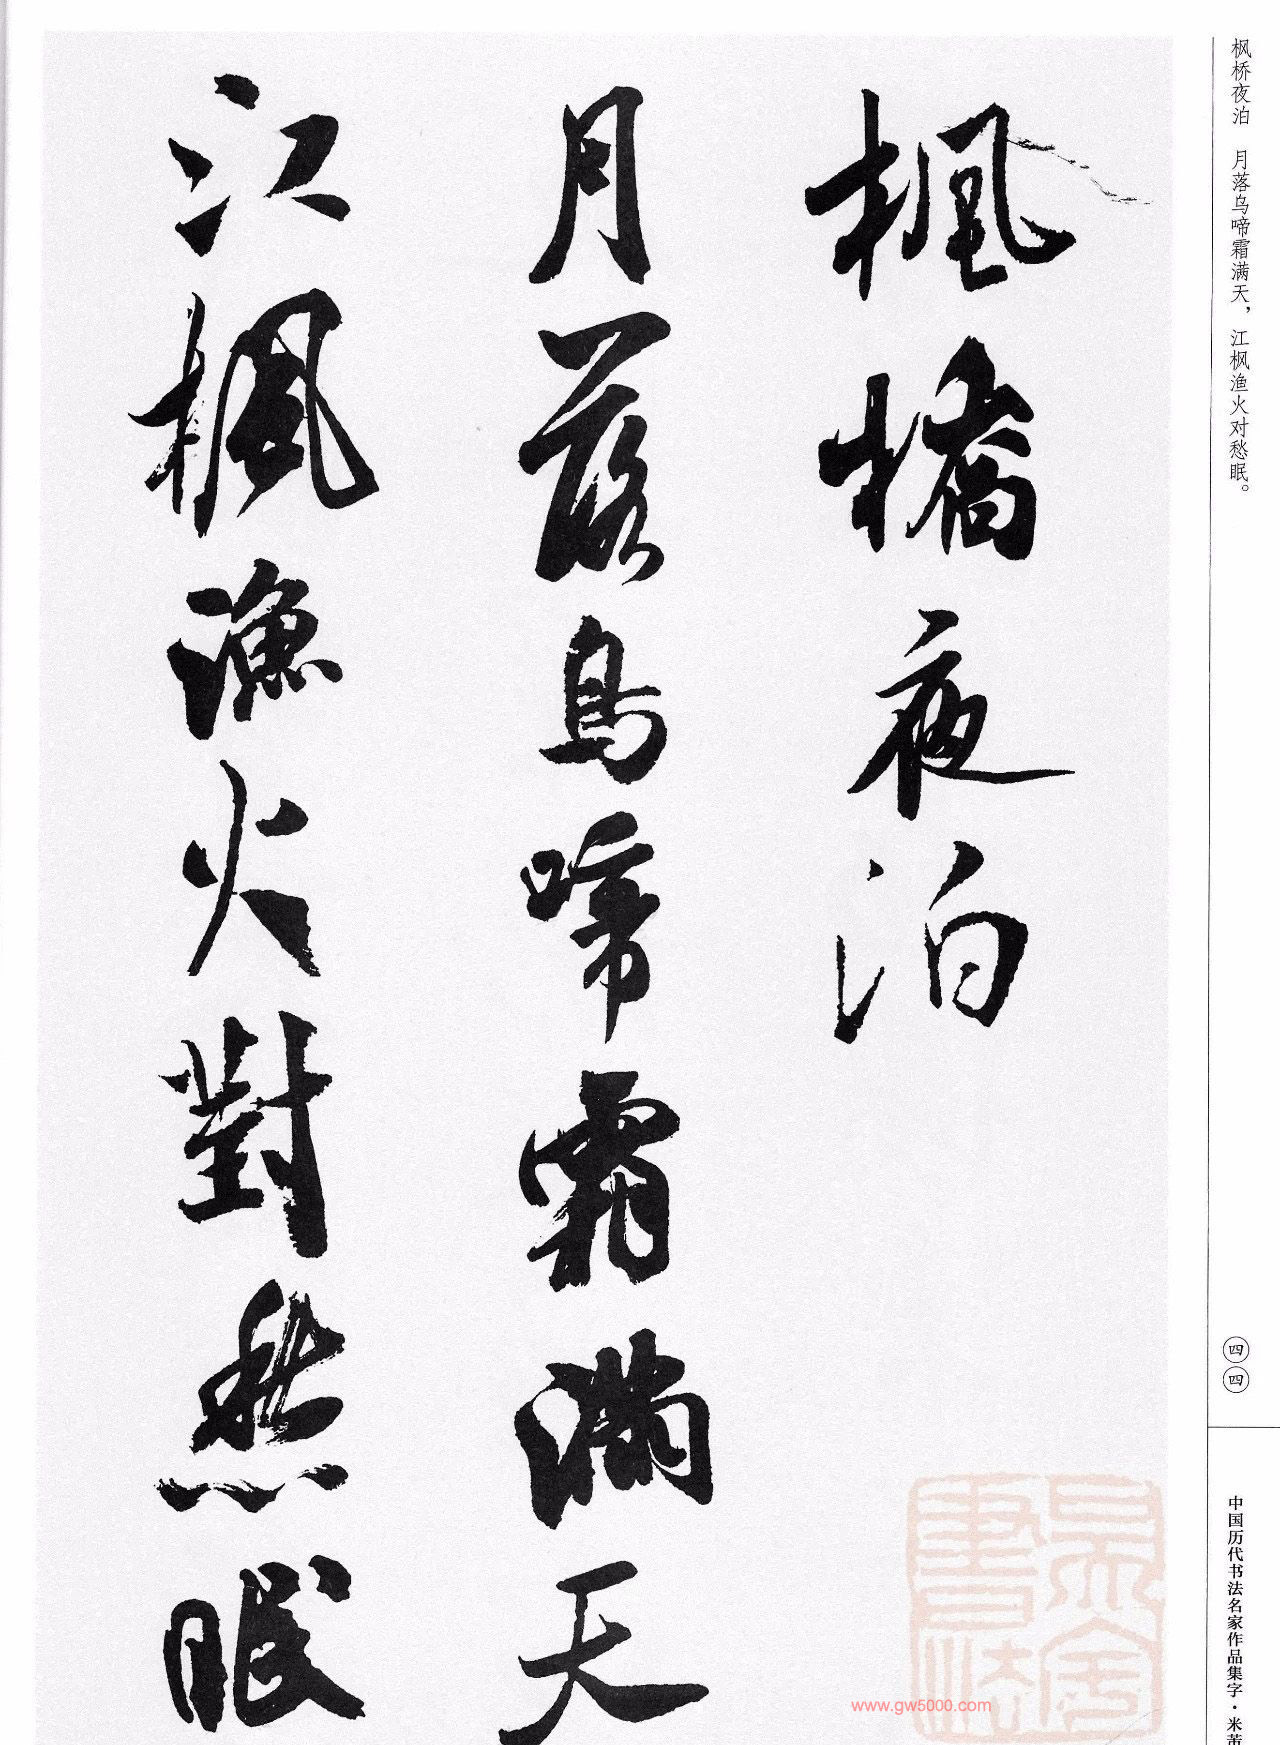 枫桥夜泊　月落乌啼霜满天，江枫渔火对愁眠。
楓橋夜泊
月落烏啼霜滿天
江楓漁火對愁眠
四四
中国历代书法名家作品集字·米芾
www.gw5000.com